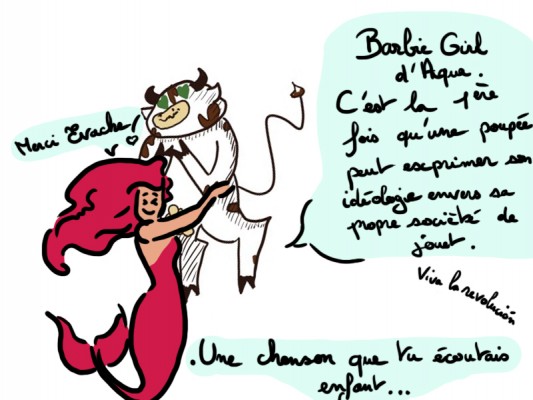 Merci Evache!
Barbie Girl
d'Aqua.
C'est la 1ère
fois qu'une poupée
peut exprimer son
idéologie envers sa
propre société de
jouet.
Viva la revolución
.Une chanson que tu écoutais
enfant...